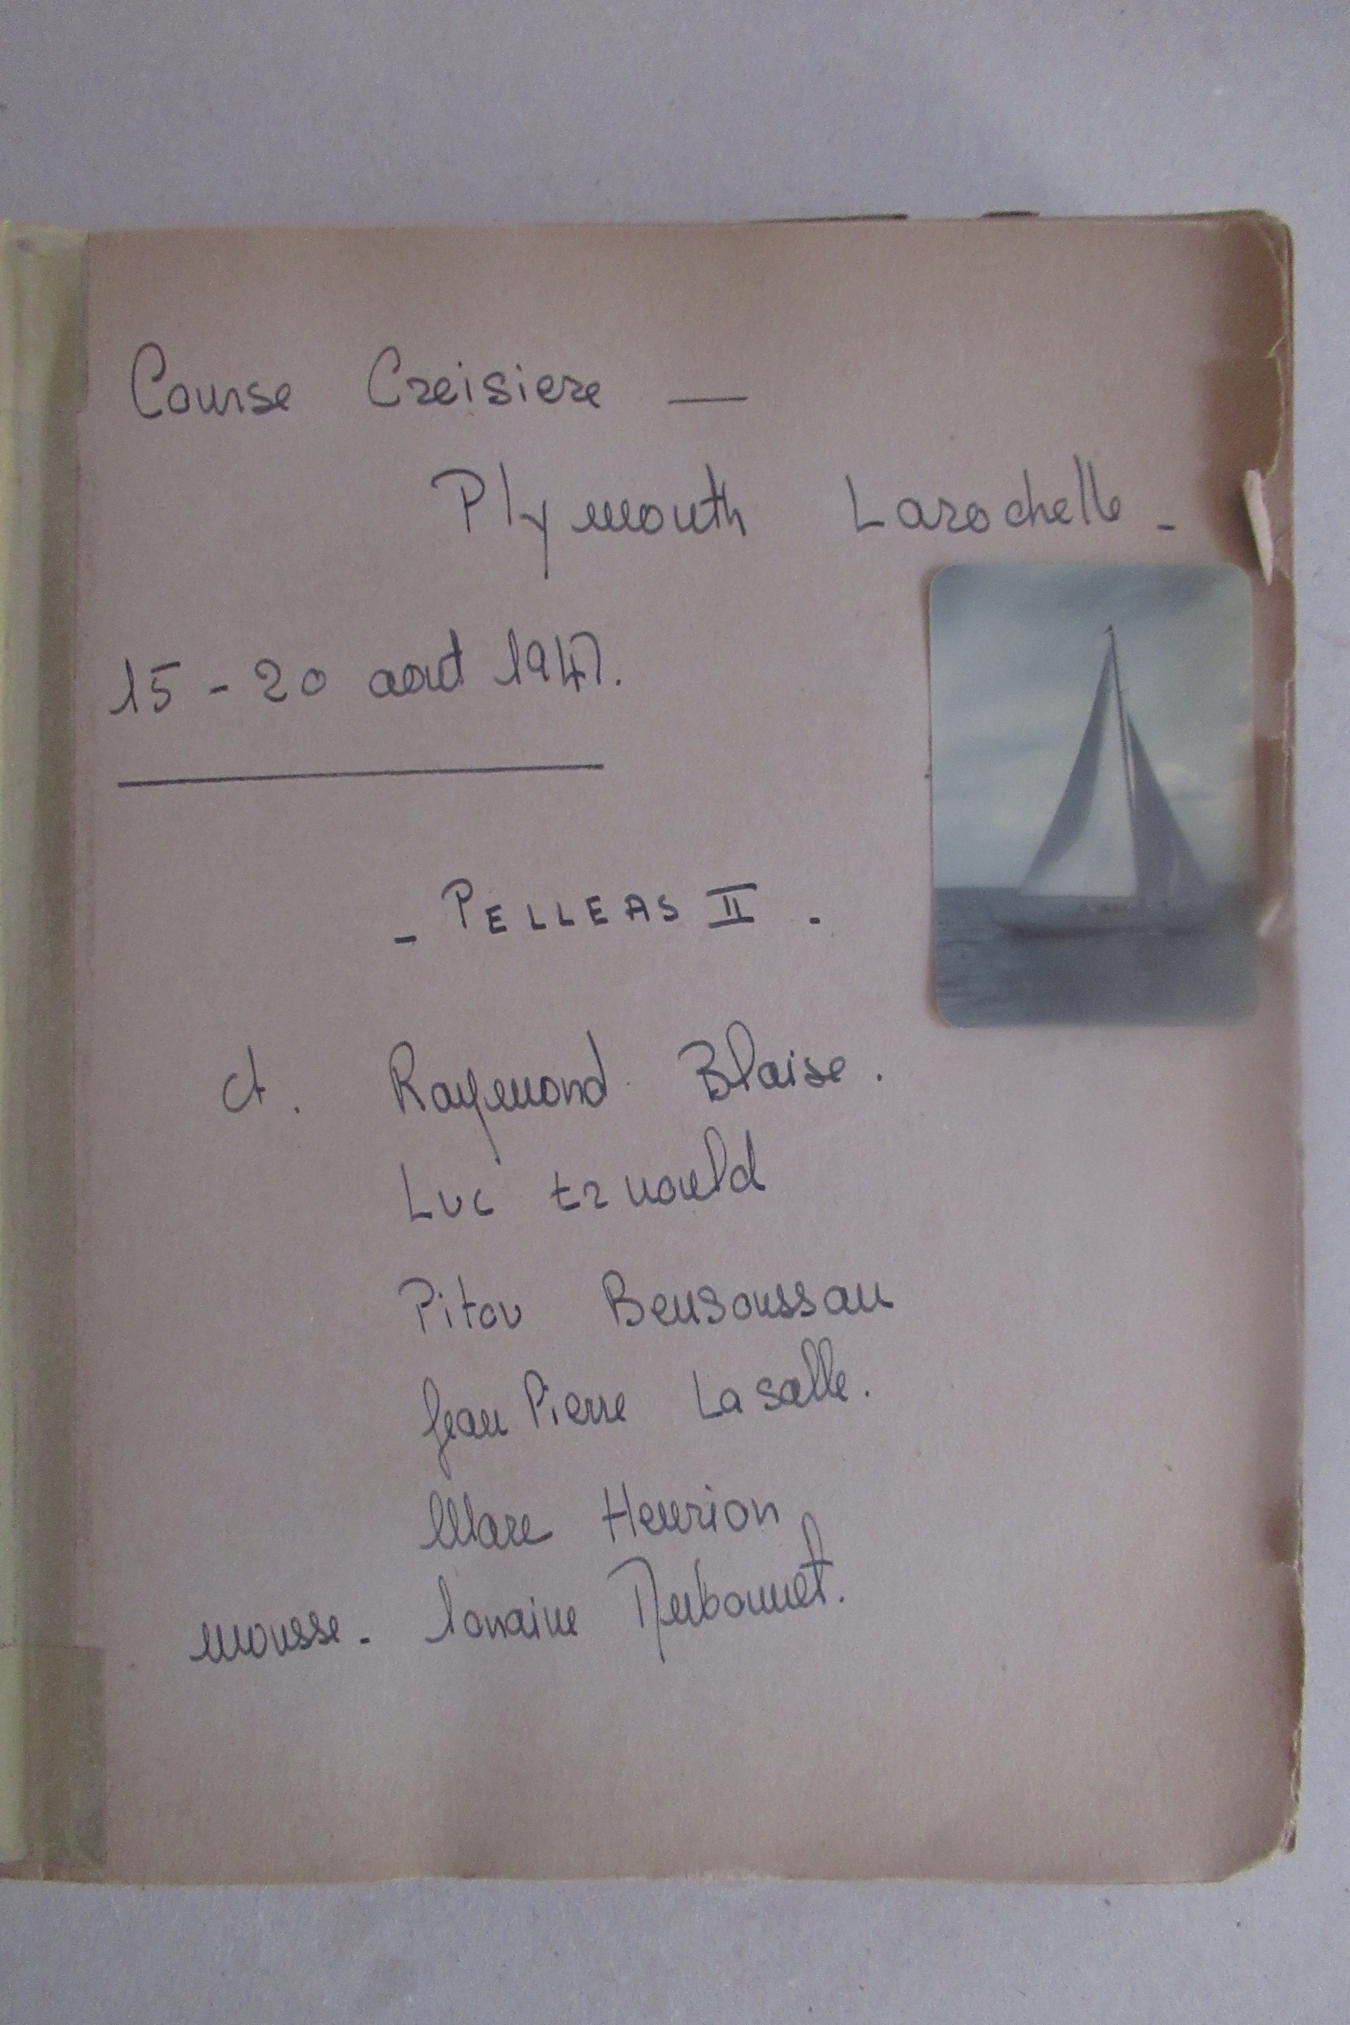 Course Creisiere —
Plymouth Larochelle -
15 - 20 aout 1947.
- PELLEAS II -
ct. Raymond Blaise.
Luc Ernould
Pitou Bensoussan
Jean Pierre Lasalle.
Marc Henrion
mousse - lorraine Dubonnet.